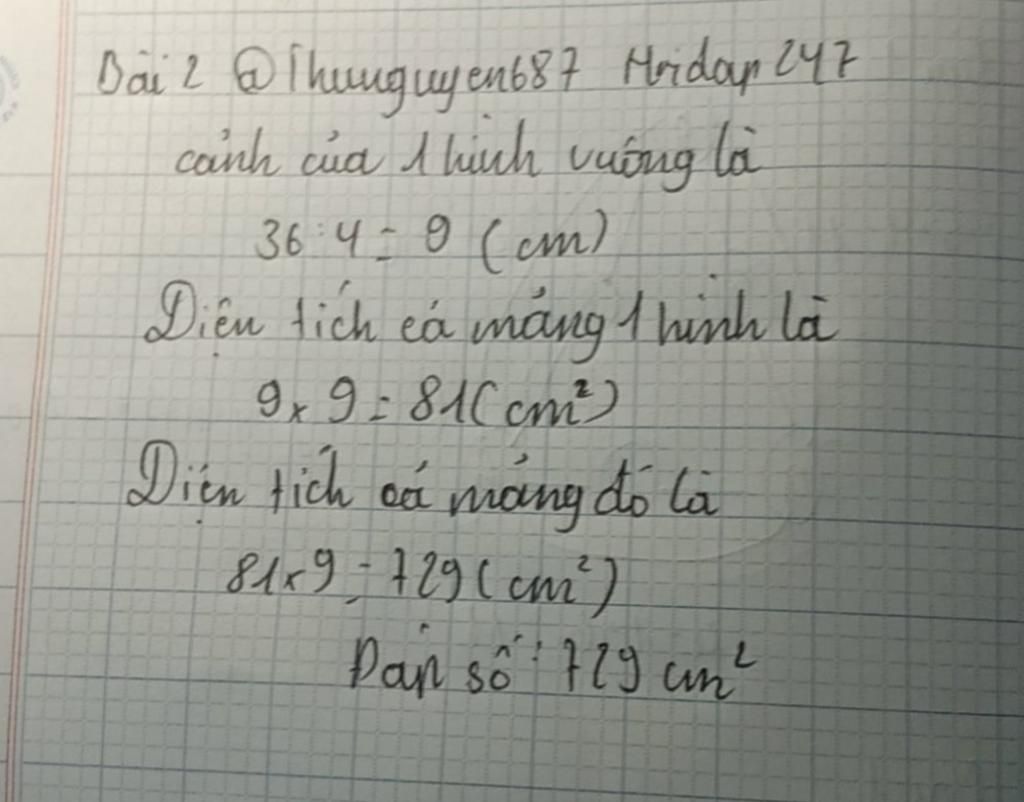 Bài 2 @Thuuguyen687 Hoidap247
cảnh của 1 hình vuông là
36 : 4 = 9 (cm)
Diện tích cả mảng 1 hình là
9 x 9 = 81 (cm²)
Diện tích cả mảng đó là
81 x 9 = 729 (cm²)
Đáp số : 729 cm²